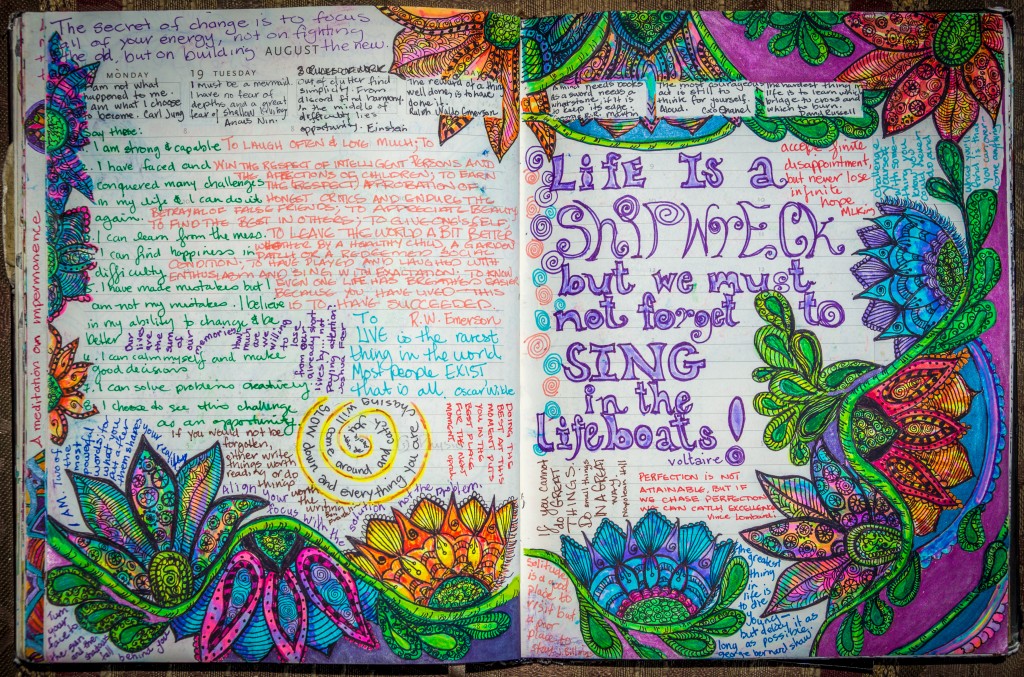 The secret of change is to focus
all of your energy, not on fighting
the old, but on building the new.
AUGUST
MONDAY
19 TUESDAY
I am not what
happened to me
I am what I choose
to become. Carl Jung
I must be a mermaid
I have no fear of
depths and a great
fear of shallow living
Anais Nin.
3 RULES OF WORK
out of clutter find
simplicity. From
discord find harmony.
In the middle of
difficulty lies
opportunity. Einstein
The reward of a thing
well done, is to have
done it.
Ralph Waldo Emerson
Say these:
I am strong & capable
I have faced and
conquered many challenges
in my life & I can do it
again.
I can learn from the mess.
I can find happiness in
difficulty
I have made mistakes but I
am not my mistakes. I believe
in my ability to change & be
better
I can calm myself and make
good decisions
I can solve problems creatively.
I choose to see this challenge
as an opportunity.
TO LAUGH OFTEN & LOVE MUCH; TO
WIN THE RESPECT OF INTELLIGENT PERSONS AND
THE AFFECTIONS OF CHILDREN; TO EARN
THE RESPECT APPROBATION OF
HONEST CRITICS AND ENDURE THE
BETRAYAL OF FALSE FRIENDS; TO APPRECIATE BEAUTY
TO FIND THE BEST IN OTHERS; TO GIVE ONE'S SELF
TO LEAVE THE WORLD A BIT BETTER
WHETHER BY A HEALTHY CHILD, A GARDEN
PATCH OR A REDEEMED SOCIAL
CONDITION; TO HAVE PLAYED AND LAUGHED WITH
ENTHUSIASM AND SING WITH EXALTATION; TO KNOW
EVEN ONE LIFE HAS BREATHED EASIER
BECAUSE YOU HAVE LIVED THIS
IS TO HAVE SUCCEEDED
R.W. Emerson
A meditation on impermanence
our
lives
are the
sum
of
our
memories
how
much
are
we
willing
to lose
from our
already short
lives by... not
paying attention
Joshua Foer
To
LIVE is the rarest
thing in the world
Most people EXIST
that is all. Oscar Wilde
I AM. Two of
the most
powerful
words; for
what you
put after
them shapes
your reality
If you would not be
forgotten
either write
things worth
reading or do
things
worth
the
writing
chasing
will come around and everything you are
NOW
DOING THE
BEST AT THIS
MOMENT PUTS
YOU IN THE
BEST PLACE
FOR THE NEXT
MOMENT. Oprah
Align your
focus with the
solution
not the problem.
Turn
your
face to
the sun
and the
shadows
fall
behind you
A mind needs books
as a sword needs a
whetstone, if it is
to keep its edge.
George R.R. Martin
The most courageous
act is still to
think for yourself.
Aloud. Coco Chanel
The hardest thing in
life is to learn which
bridge to cross and
which to burn.
David Russell
accept finite
disappointment,
but never lose
infinite
hope.
MLKing
LIFE IS a
SHIPWRECK
but we must
not forget to
SING
in the
lifeboats!
voltaire
If you cannot
do GREAT
THINGS.
Do small things
IN A GREAT
WAY.
Napoleon Hill
PERFECTION IS NOT
ATTAINABLE, BUT IF
WE CHASE PERFECTION
WE CAN CATCH EXCELLENCE
Vince Lombardi
Solitude
is a good
place to
visit but
a poor
place to
stay.
the
greatest
thing
in
life is
to die
young
but delay it as
long as possible.
george bernard shaw